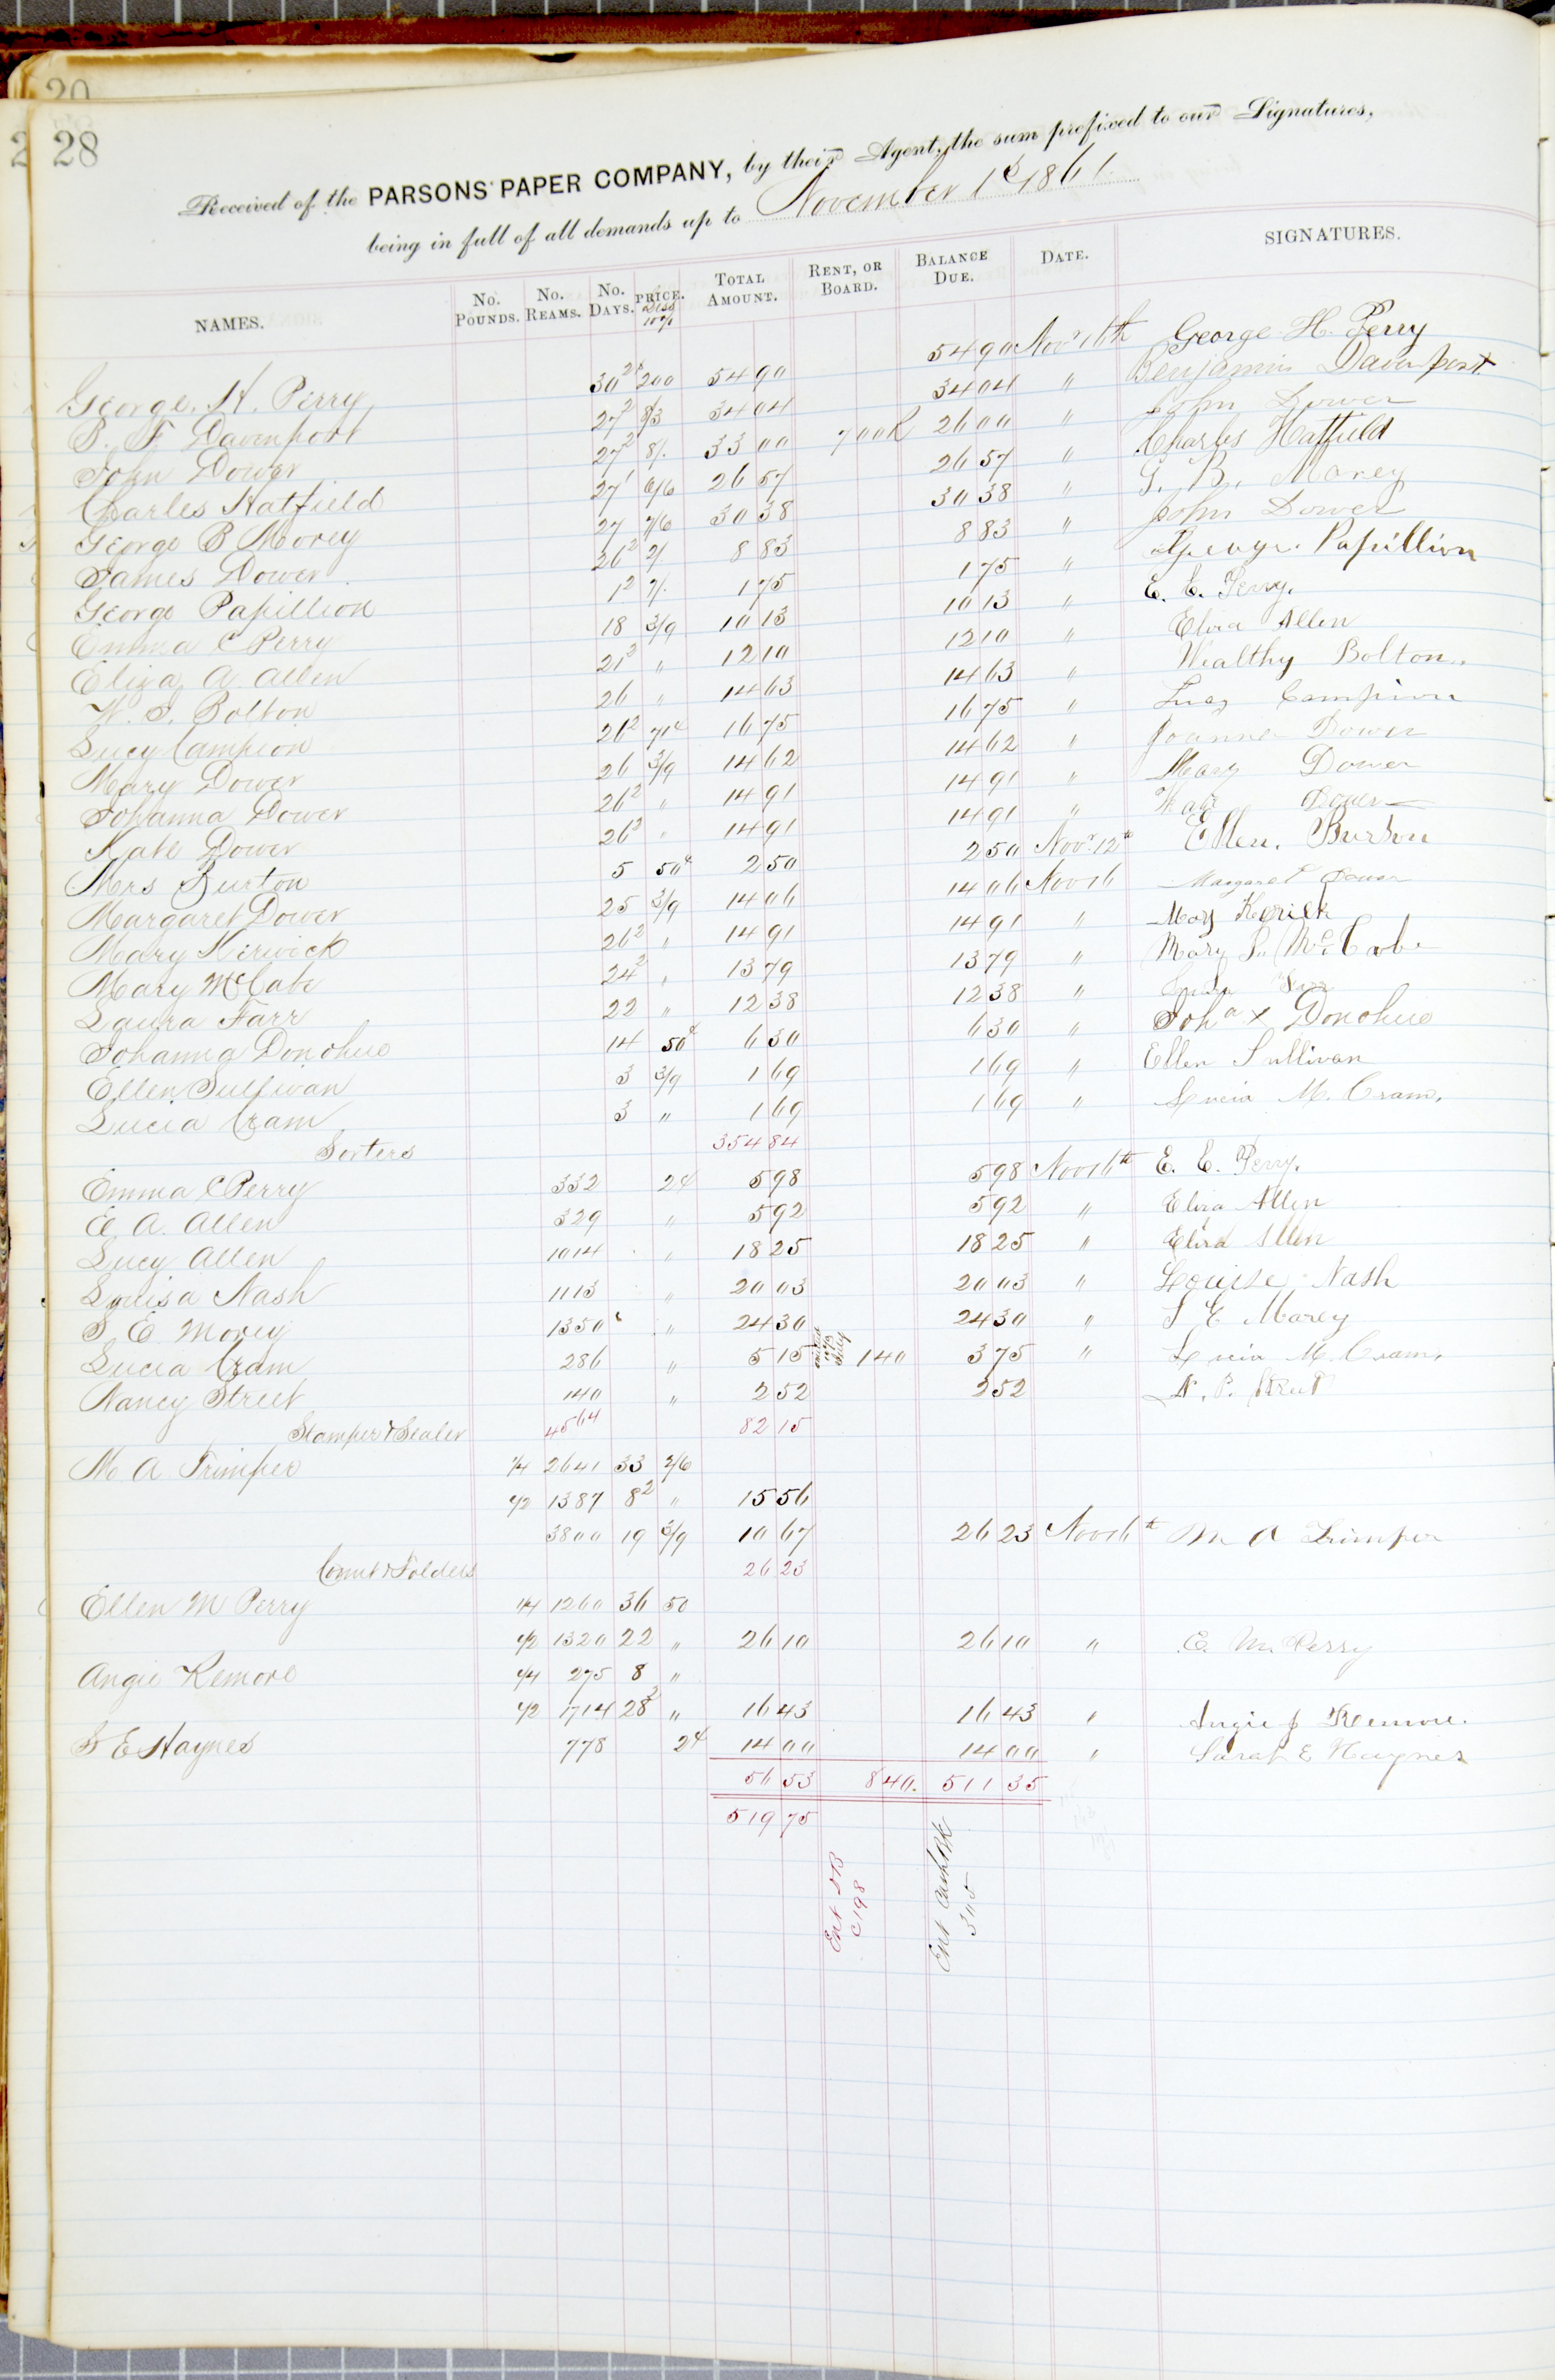 20
2 28
Received of the PARSONS PAPER COMPANY, by their Agent, the sum prefixed to our Signatures,
being in full of all demands up to November 1st 1861.
NAMES. No. Pounds. No. Reams. No. Days. PRICE. Total Amount. Rent, or Board. Balance Due. Date. SIGNATURES.
George. H. Perry 30 2 200 54 90 54 90 Nov 16th George H. Perry
B. F Davenport 27 2 8/3 34 04 34 04 " Benjamin Davenport
John Dower 27 2 8/. 33 00 7 00 R 26 00 " John Dower
Charles Hatfield 27 1 6/6 26 57 26 57 " Charles Hatfield
George B Morey 27 7/6 30 38 30 38 " G. B. Morey
James Dower 26 2 2/. 8 83 8 83 " John Dower
George Papillion 1 2 7/. 1 75 1 75 " George Papillion
Emma C Perry 18 3/9 10 13 10 13 " E. C. Perry.
Eliza A. Allen 21 2 " 12 10 12 10 " Eliza Allen
W. S. Bolton 26 " 14 63 14 63 " Wealthy Bolton.
Lucy Campion 26 2 71¢ 16 75 16 75 " Lucy Campion
Mary Dower 26 3/9 14 62 14 62 " Joanna Dower
Johanna Dower 26 2 " 14 91 14 91 " Mary Dower
Kate Dower 26 2 " 14 91 14 91 " Kate Dower
Mrs Burton 5 50¢ 2 50 2 50 Nov. 12th Ellen. Burton
Margaret Dower 25 3/9 14 06 14 06 Nov 16 Margaret Dower
Mary Kirwick 26 2 " 14 91 14 91 " Mary Kerick
Mary McCabe 24 2 " 13 79 13 79 " Mary McCabe
Laura Farr 22 " 12 38 12 38 " Laura Farr
Johanna Donohue 14 50¢ 6 30 6 30 " Joha x Donohue
Ellen Sullivan 3 3/9 1 69 1 69 " Ellen Sullivan
Lucia Cram 3 " 1 69 1 69 " Lucia M. Cram.
Sorters 354 84
Emma C Perry 332 2¢ 5 98 5 98 Nov 16th E. C. Perry.
E A. Allen 329 " 5 92 5 92 " Eliza Allen
Lucy Allen 1014 " 18 25 18 25 " Eliza Allen
Louisa Nash 1113 " 20 03 20 03 " Louise Nash
S E Morey 1350 " 24 30 24 30 " S E Morey
Lucia Cram 286 " 5 15 1 40 3 75 " Lucia M. Cram.
Nancy Street 140 " 2 52 2 52 N. P. Street
Stamper & Sealer 4564 82 15
M A Trimper 1/4 2641 33 2/6
1/2 1387 8 2 " 15 56
3800 19 3/9 10 67 26 23 Nov 16th M A Trimper
Count & Folders 26 23
Ellen M Perry 1/4 1260 36 50
1/2 1320 22 " 26 10 26 10 " E. M. Perry
Angie Kemore 1/4 275 8 "
1/2 1714 28 2 " 16 43 16 43 " Angie J Kemore.
S E Haynes 778 2¢ 14 00 14 00 " Sarah E Haynes
56 53 8 40. 511 35
519 75
Ent DB
C 198
Ent CashBk
305